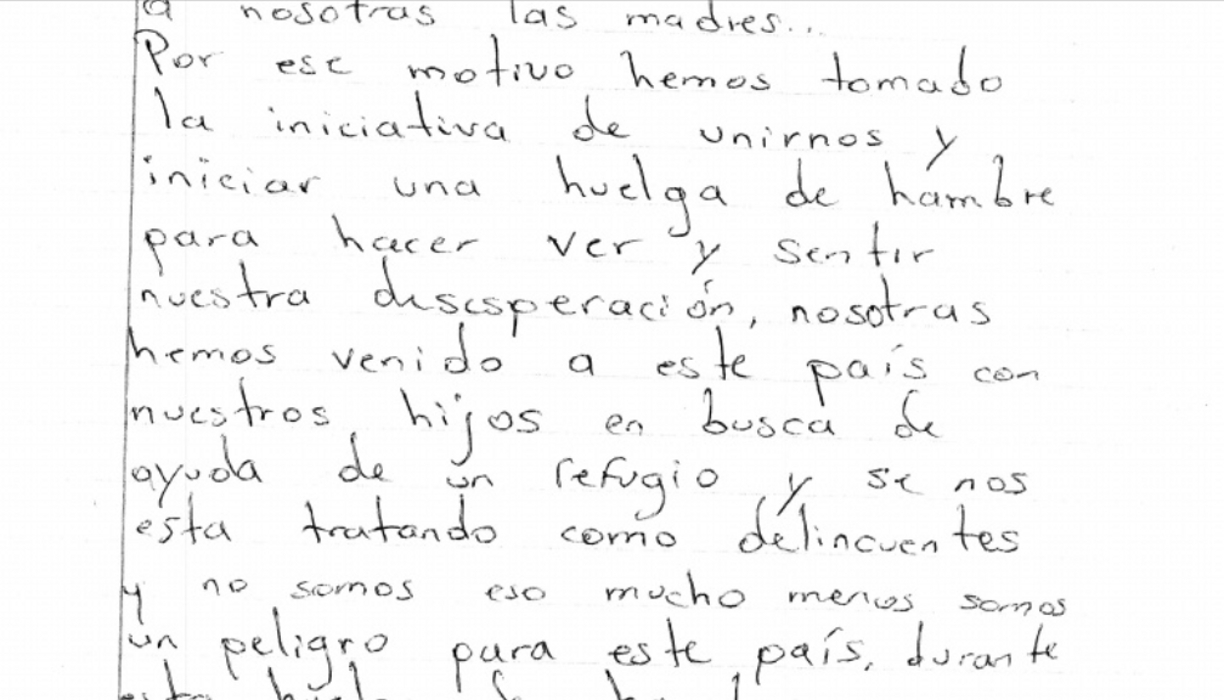 a nosotras las madres...
Por ese motivo hemos tomado
la iniciativa de unirnos y
iniciar una huelga de hambre
para hacer ver y sentir
nuestra desesperación, nosotras
hemos venido a este país con
nuestros hijos en busca de
ayuda de un refugio y se nos
esta tratando como delincuentes
y no somos eso mucho menos somos
un peligro para este país, durante